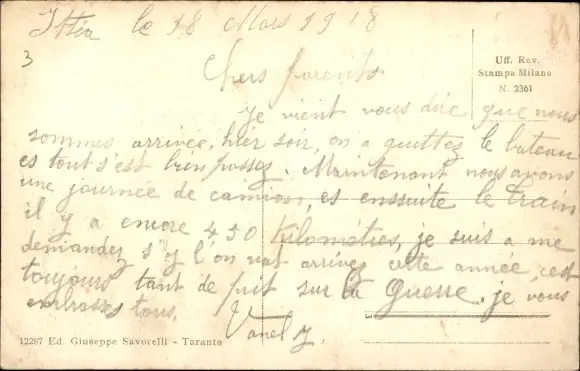 Ittéa le 18 Mars 1918
3
Uff. Rev.
Stampa Milano
N. 2361
Chers parents
je vient vous dire que nous
sommes arrivée, hier soir, on a quittez le bateau
es tout s'est bien passez. Maintenant nous avons
une journée de camion, es enssuite le train
il y a encore 450 Kilométres, je suis a me
demandez s'y l'on vat arrivez cette année, c'est
toujours tant de fait sur la Guerre. je vous
embrasses tous.
12287 Ed. Giuseppe Savorelli - Taranto